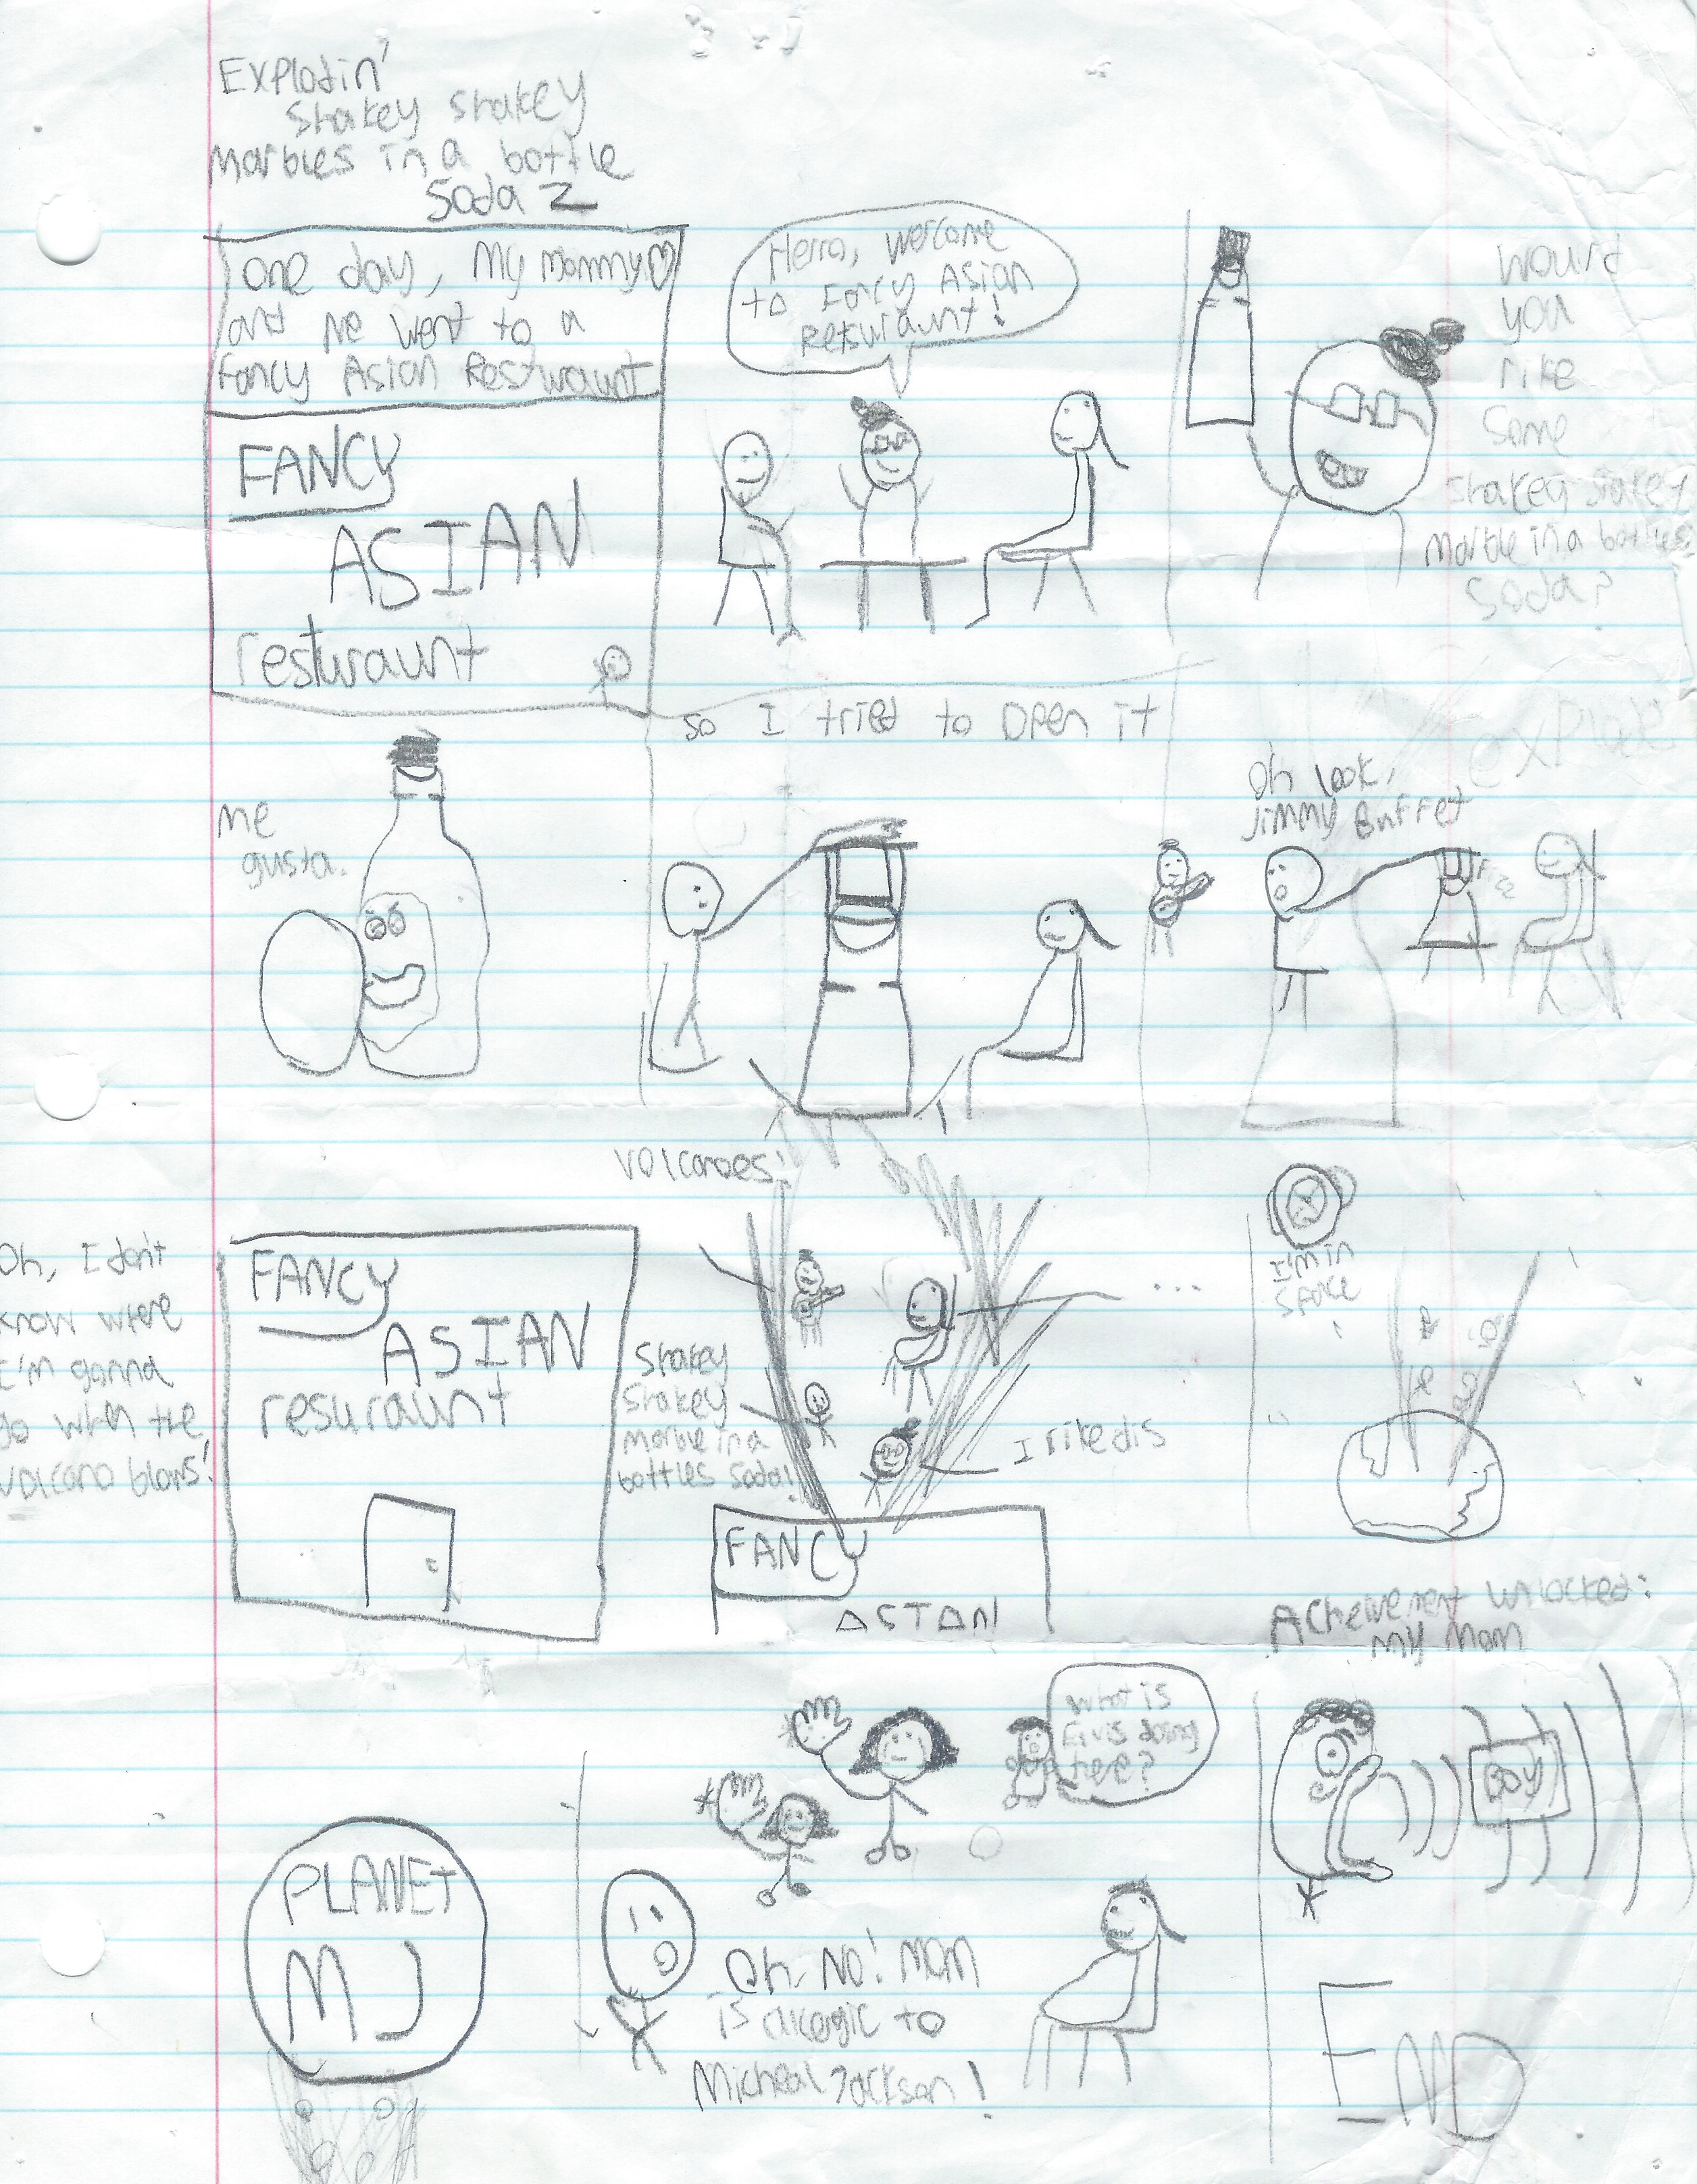 Explodin'
Shakey shakey
Marbles in a bottle
Soda 2
One day, My Mommy
and me went to a
Fancy Asian Restwaunt
FANCY
ASIAN
resturaunt
Herro, Wercome
to Fancy Asian
Restwraunt!
Wourd
you
rike
some
shakey shakey
marble in a bottles
soda?
me
gusta.
so I tried to open it
explode
Oh look,
Jimmy Buffet
Fizz
Oh, I don't
know where
I'm gonna
go when the
volcano blows!
FANCY
ASIAN
resuraunt
volcanoes!
Shakey
Shakey
marble in a
bottles soda!
...
I rike dis
FANCY
ASIAN
I'm in
space
!
PLANET
MJ
What is
Elvis doing
here?
Oh, No! Mom
is alergic to
Micheal Jackson!
Acheivement unlocked:
My Mom
BOY
END